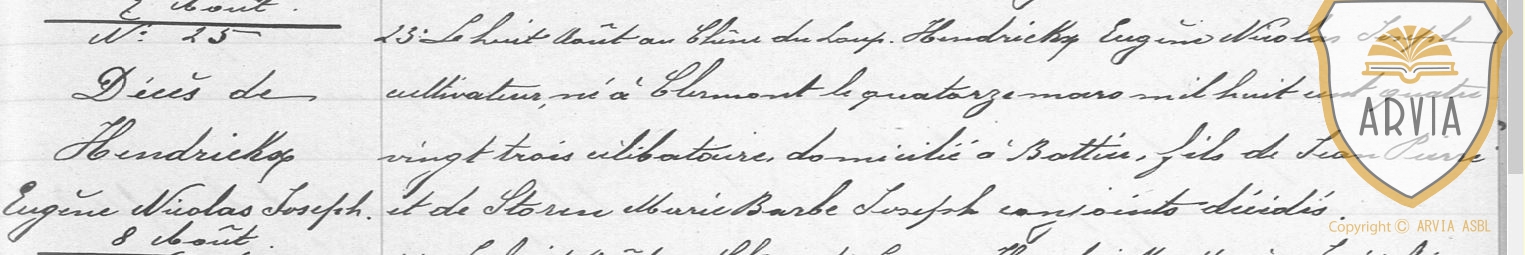 7 Août.
N° 25
Décès de
Hendrickx
Eugène Nicolas Joseph.
8 Août.
25° Le huit Août au Chêne du Loup. Hendrickx Eugène Nicolas Joseph
cultivateur, né à Clermont le quatorze mars mil huit cent quatre
vingt trois célibataire, domicilié à Battice, fils de Jean Pierre
et de Storen Marie Barbe Joseph conjoints décédés.
ARVIA
Copyright © ARVIA ASBL